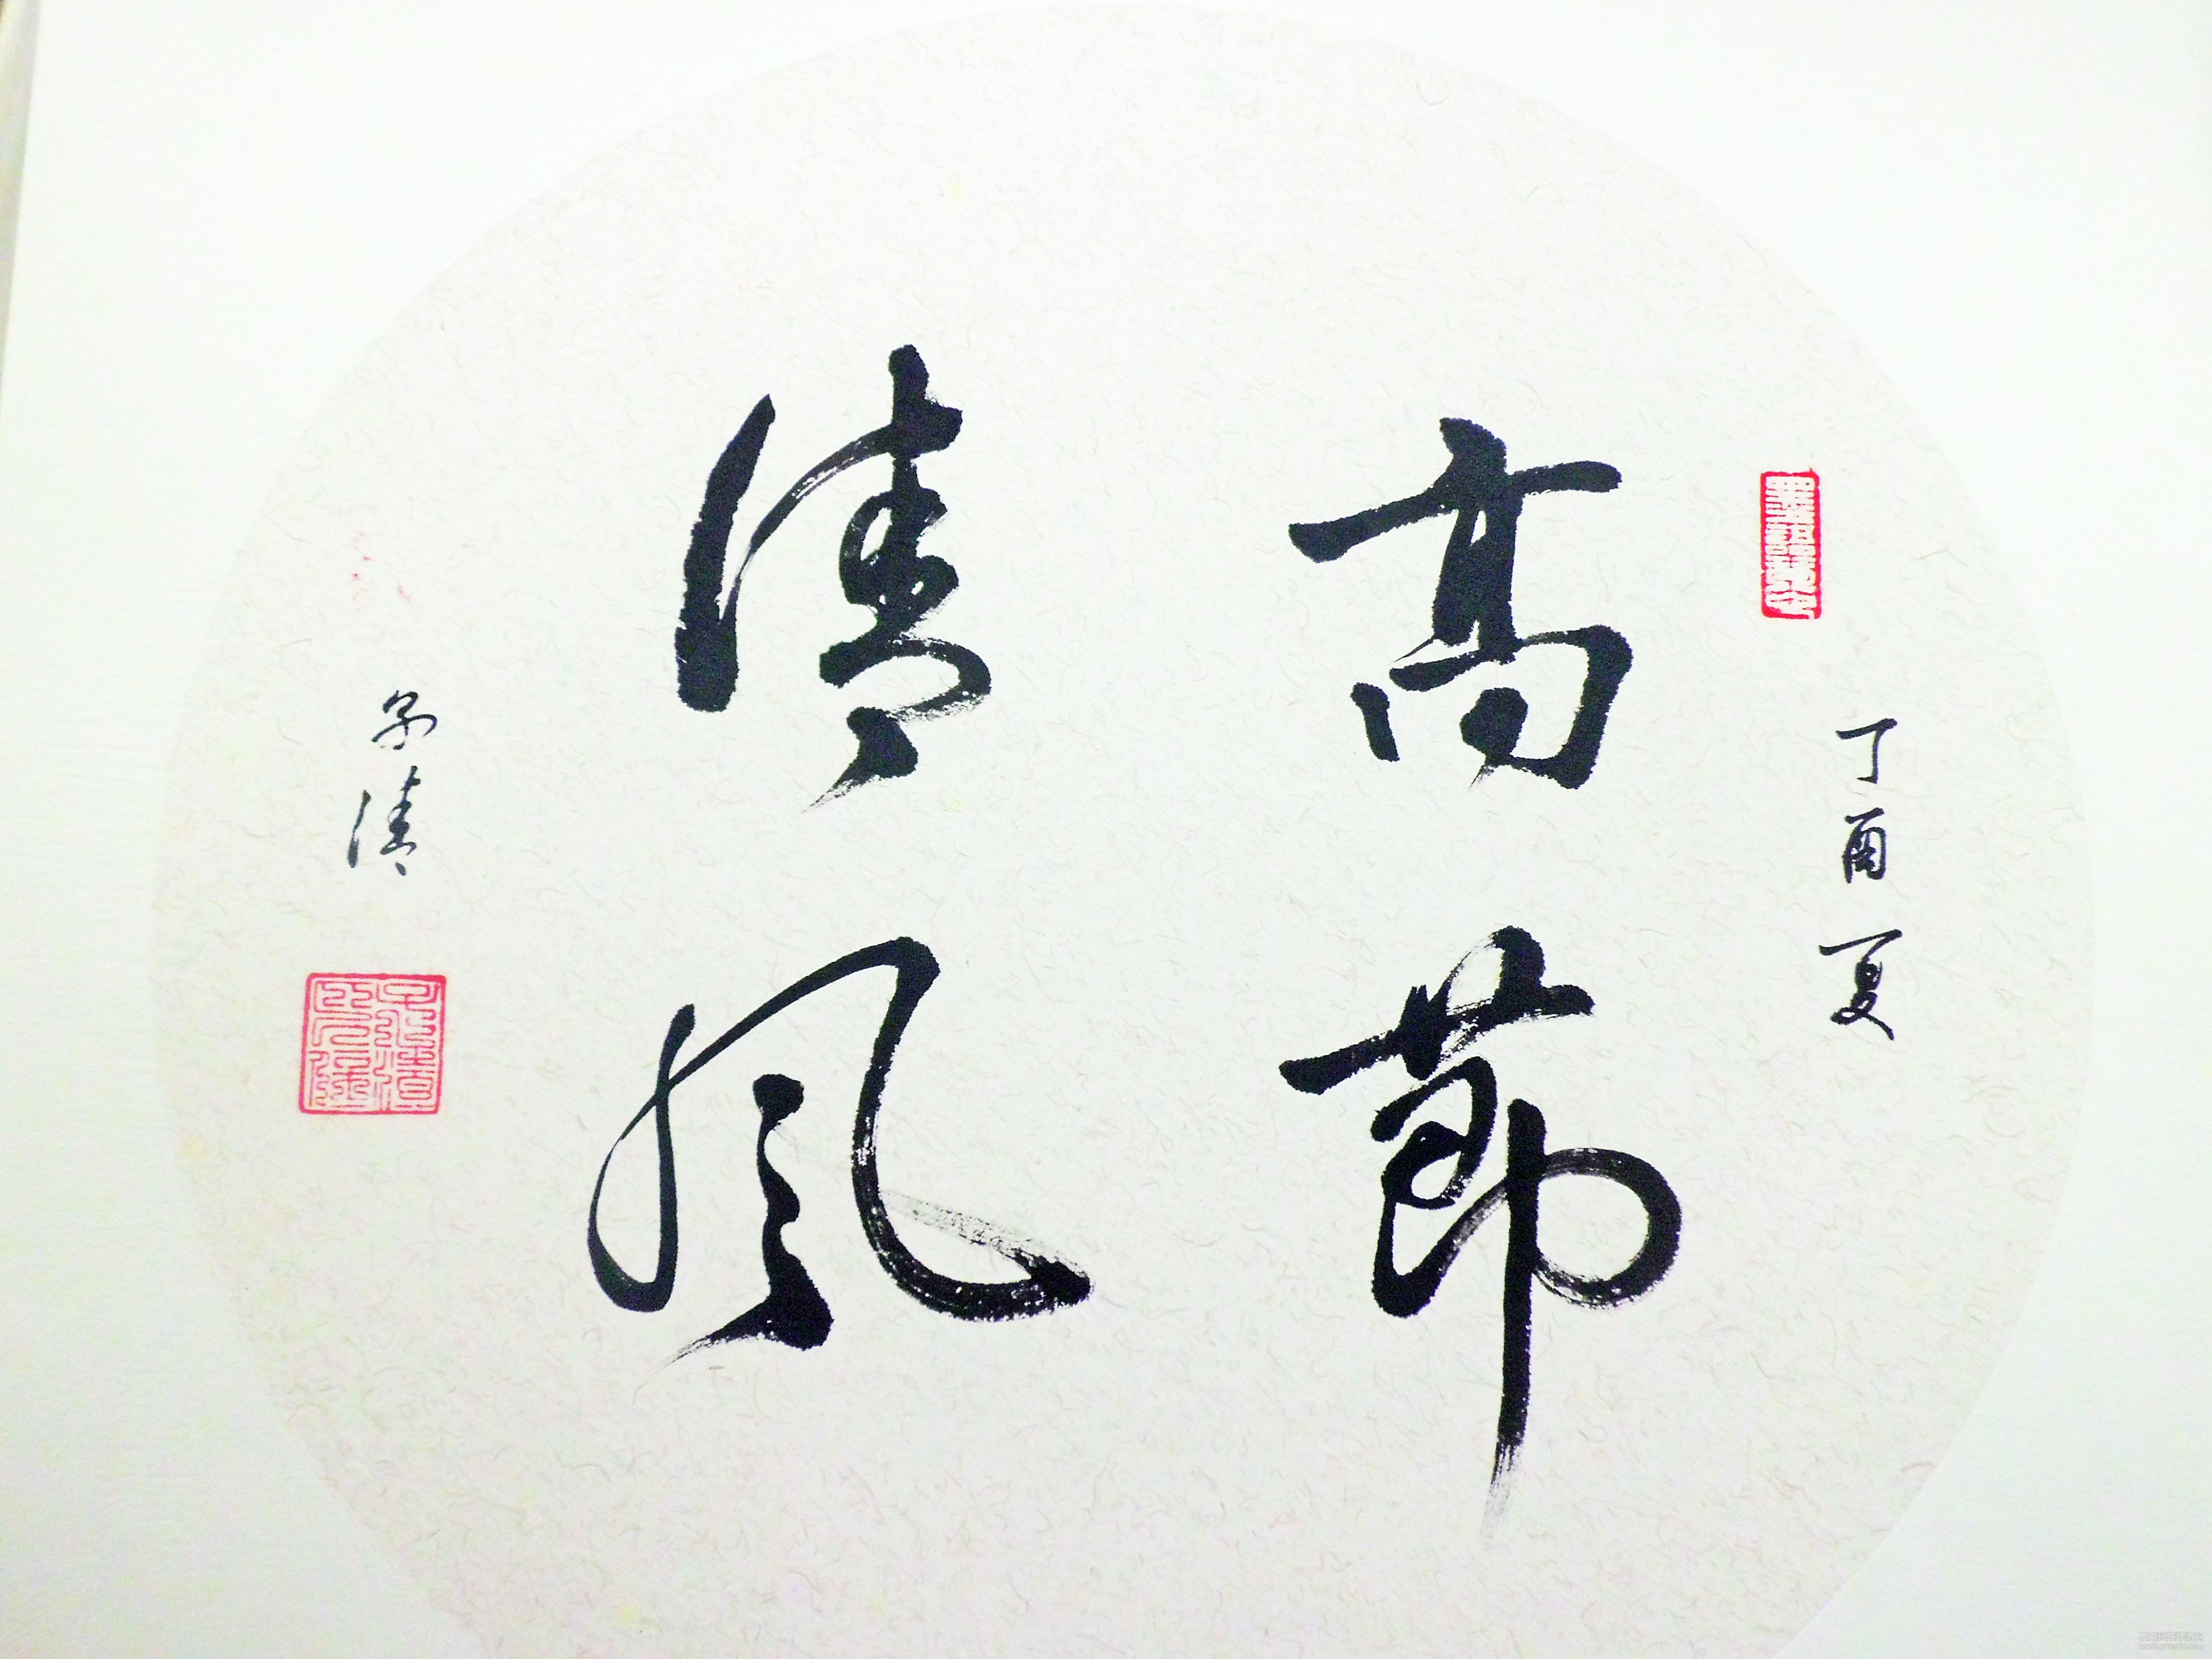 丁酉夏
高節
清風
子清